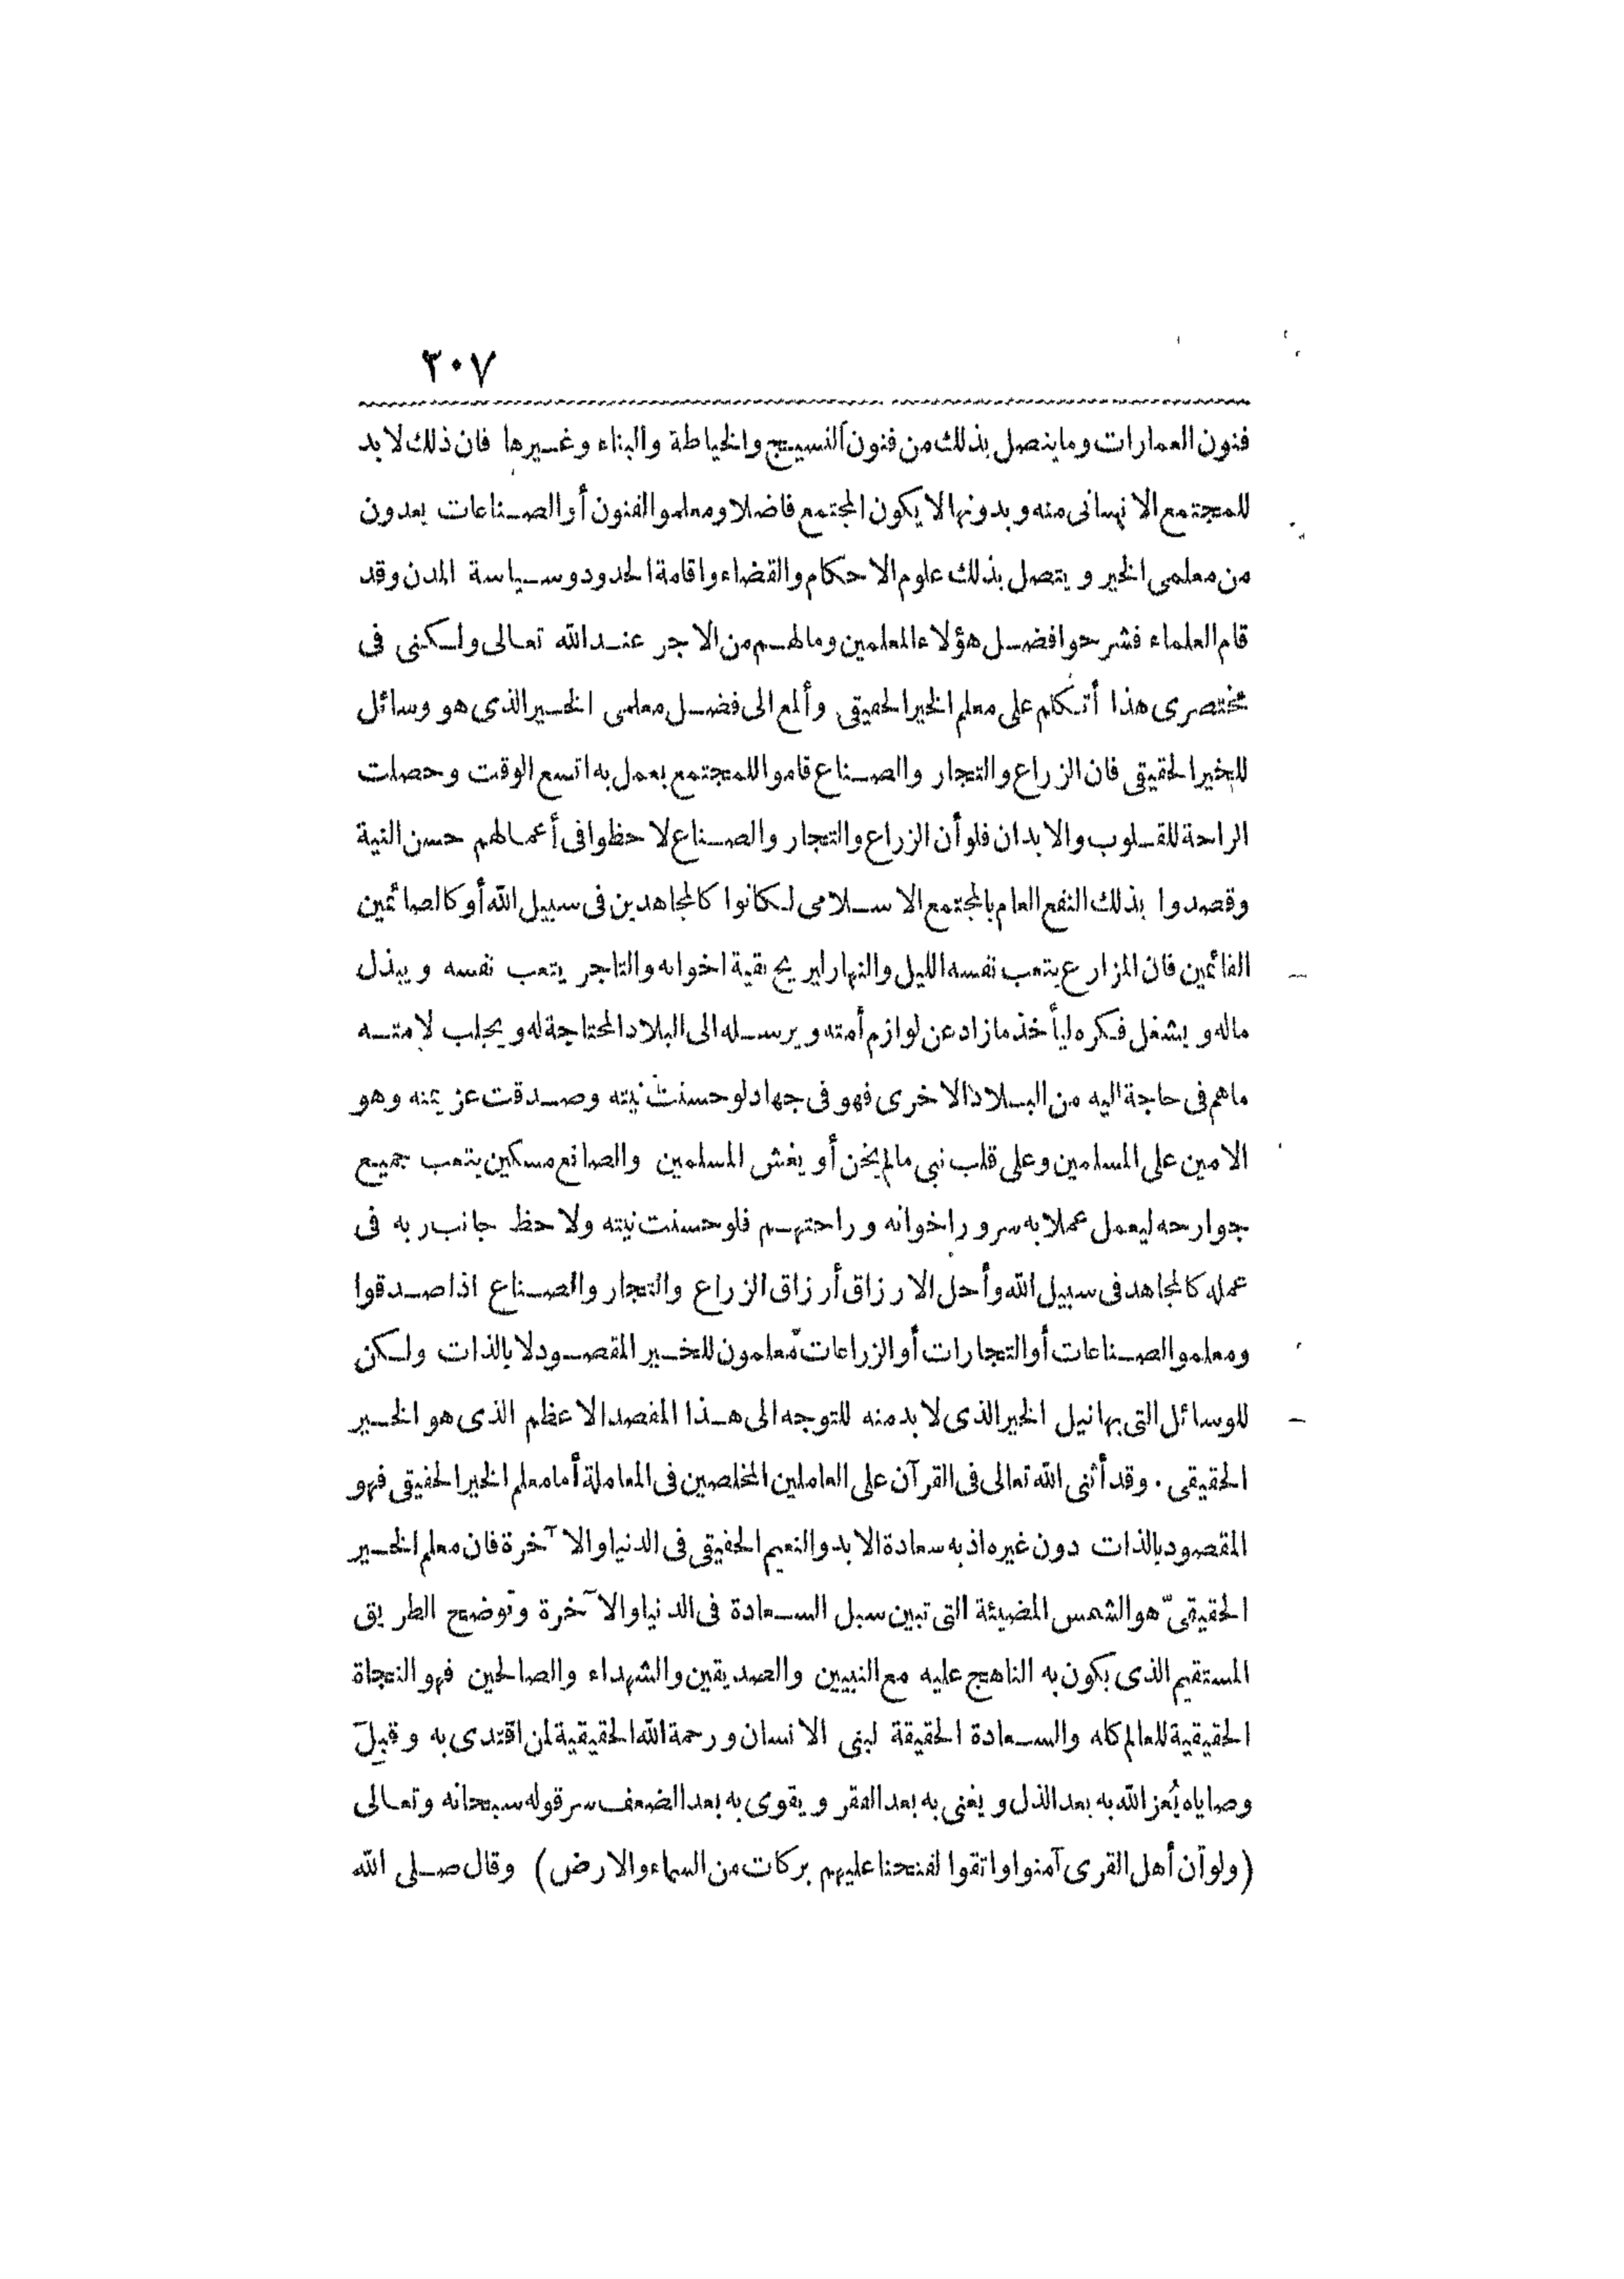 ٣٠٧
فنون العمارات وما يتصل بذلك من فنون النسيج والخياطة والبناء وغيرها فان ذلك لا بد
للمجتمع الانسانى منه وبدونها لا يكون المجتمع فاضلا ومعلمو الفنون أو الصناعات يعدون
من معلمى الخير ويتصل بذلك علوم الاحكام والقضاء واقامة الحدود وسياسة المدن وقد
قام العلماء فشرحوا فضل هؤلاء المعلمين وما لهم من الاجر عند الله تعالى ولكنى فى
مختصرى هذا أتكلم على معلم الخير الحقيقى وألمع الى فضل معلمى الخير الذى هو وسائل
للخير الحقيقى فان الزراع والتجار والصناع قاموا للمجتمع بعمل به اتسع الوقت وحصلت
الراحة للقلوب والابدان فلو أن الزراع والتجار والصناع لاحظوا فى أعمالهم حسن النية
وقصدوا بذلك النفع العام بالمجتمع الاسلامى لكانوا كالمجاهدين فى سبيل الله أو كالصائمين
القائمين فان المزارع يتعب نفسه الليل والنهار ليريح بقية اخوانه والتاجر يتعب نفسه ويبذل
ماله ويشغل فكره ليأخذ ما زاد عن لوازم أمته ويرسله الى البلاد المحتاجة له ويجلب لامته
ما هم فى حاجة اليه من البلاد الاخرى فهو فى جهاد لو حسنت نيته وصدقت عزيمته وهو
الامين على المسلمين وعلى قلب نبى ما لم يخن أو يغش المسلمين والصانع مسكين يتعب جميع
جوارحه ليعمل عملا به سرور اخوانه وراحتهم فلو حسنت نيته ولاحظ جانب ربه فى
عمله كالمجاهد فى سبيل الله وأحل الارزاق أرزاق الزراع والتجار والصناع اذا صدقوا
ومعلمو الصناعات أو التجارات أو الزراعات معلمون للخير المقصود لا بالذات ولكن
للوسائل التى بها نيل الخير الذى لا بد منه للتوجه الى هذا المقصد الاعظم الذى هو الخير
الحقيقى . وقد أثنى الله تعالى فى القرآن على العاملين المخلصين فى المعاملة أما معلم الخير الحقيقى فهو
المقصود بالذات دون غيره اذ به سعادة الابد والنعيم الحقيقى فى الدنيا والآخرة فان معلم الخير
الحقيقىّ هو الشمس المضيئة التى تبين سبل السعادة فى الدنيا والآخرة وتوضح الطريق
المستقيم الذى يكون به الناهج عليه مع النبيين والصديقين والشهداء والصالحين فهو النجاة
الحقيقية للعالم كله والسعادة الحقيقة لبنى الانسان ورحمة الله الحقيقية لمن اقتدى به وقبِلَ
وصاياه يُعز الله به بعد الذل ويغنى به بعد الفقر ويقوى به بعد الضعف سر قوله سبحانه وتعالى
(ولو أن أهل القرى آمنوا واتقوا لفتحنا عليهم بركات من السماء والارض) وقال صلى الله